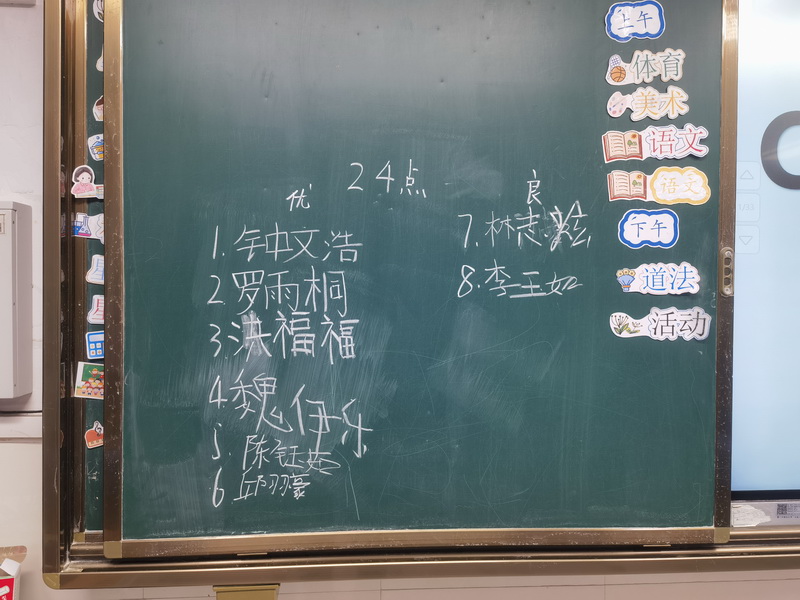 24点
优
1.钟文浩
2.罗雨桐
3.洪福福
4.魏伊乐
5.陈钰茹
6邱羽蒙
良
7.林志
8.李玉如
上午
体育
美术
语文
语文
下午
道法
活动